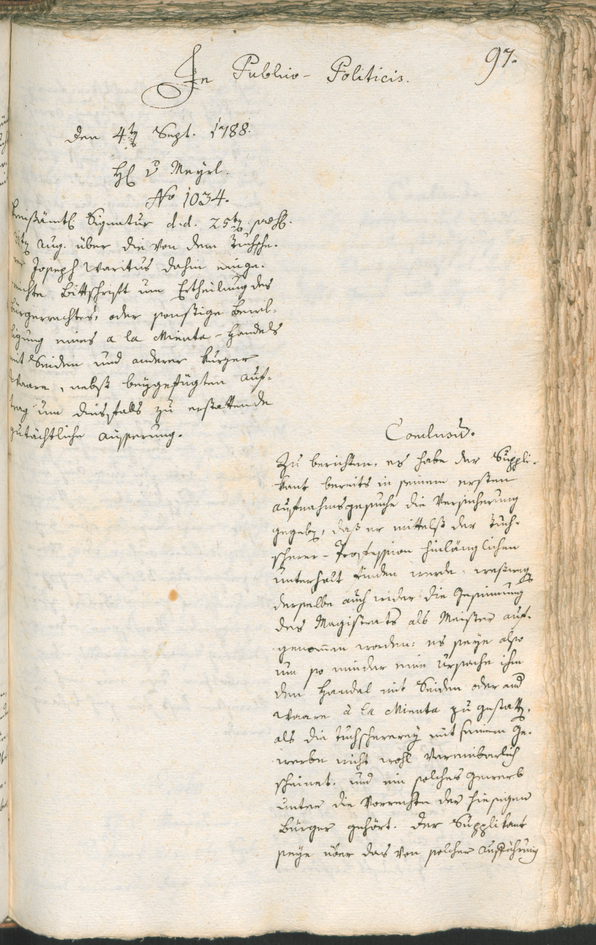 97.
In Publico-Politicis.
den 4ten Sept. 1788.
H v Mayrl.
No 1034.
Kreisämtl Signatur d. d. 25ten
Aug. über die von dem Tuchsche-
Joseph Waritus dahin einge-
reichte Bittschrift um Ertheilung des
Bürgerrechtes, oder sonstige Bewil-
ligung eines a la Minuta-Handels
mit Seiden und anderer kurzer
Waare, nebst beygefügten Auf-
trag um diesfalls zu erstattende
gutächtliche Äusserung.
Conclusum.
Zu berichten, es habe der Suppli-
kant bereits in seinem ersten
Aufnahmsgesuche die Versicherung
gegeben, daß er mittelst der Tuch-
scherer-Profession hinlänglichen
Unterhalt finden werde, weswegen
derselbe auch wider die Gesinnung
des Magistrats als Meister auf-
genommen worden; es seye also
um so minder eine Ursache ihm
den Handel mit Seiden oder and
Waare à la Minuta zu gestatten,
als die Tuchschererey mit seinem Ge-
werbe nicht wohl Vereinbarlich
scheinet, und ein solches Gewerb
unter die Vorrechte der hiesigen
Bürger gehört. Der Supplikant
seye über das von solcher Aufführung